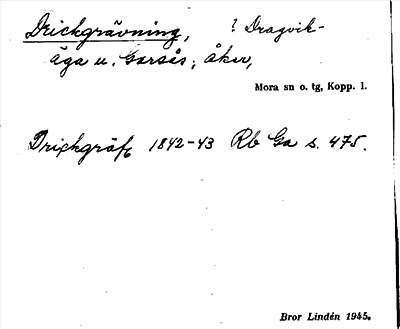 Drickgrävning, ? Dragvik-
äga u. Garsås; åker,
Mora sn o. tg, Kopp. l.
Drickgräf 1842-43 Rb Ga s. 475.
Bror Lindén 1945.